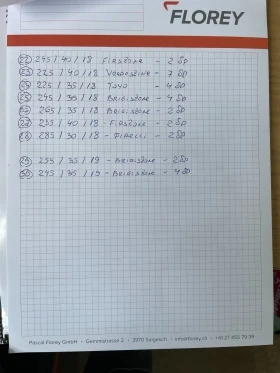 FLOREY
22 245/40/18 FIRSTONE - 2 SD
23 225/40/18 VREDESTINE - 3 SD
24 225/35/18 TOYO - 4 SD
25 245/35/18 BRIDISTONE - 4 SD
26 265/35/18 BRIDISTONE - 2 SD
27 235/40/18 - FIRSTONE - 2 SD
28 285/30/18 - PIRELLI - 2 SD
29 255/35/19 - BRIDISTONE - 2 SD
30 245/35/19 - BRIDISTONE - 4 SD
Pascal Florey GmbH • Gemmistrasse 2 • 3970 Salgesch • info@florey.ch • +41 27 455 79 39